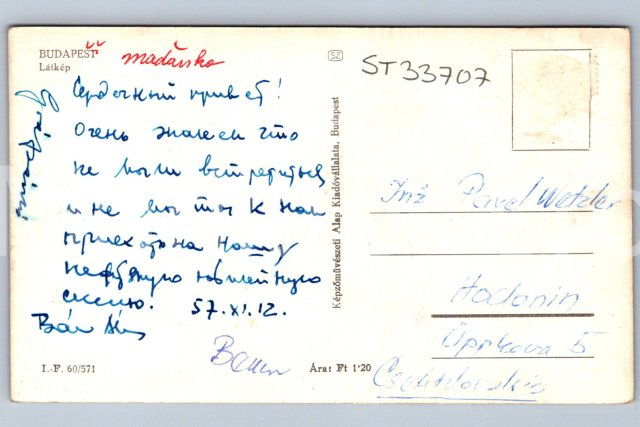 BUDAPEST
Látkép
maďarsko
SZ
ST33707
Сердечный привет!
Очень жалеем что
не могли встретиться
и не могли к нам
приехать на нашу
нефтяную юбилейную
сессию. 57.XI.12.
Képzőművészeti Alap Kiadóvállalata, Budapest
Inž Pavel Wetzler
Hodonín
Úprkova 5
I.-F. 60/571
Ára: Ft 1·20